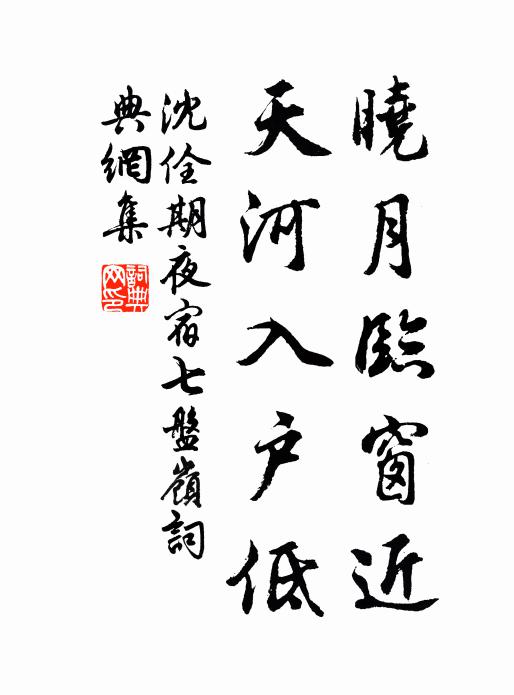 曉月臨窗近
天河入戶低
沈佺期夜宿七盤嶺詞
典網集
詞典網印